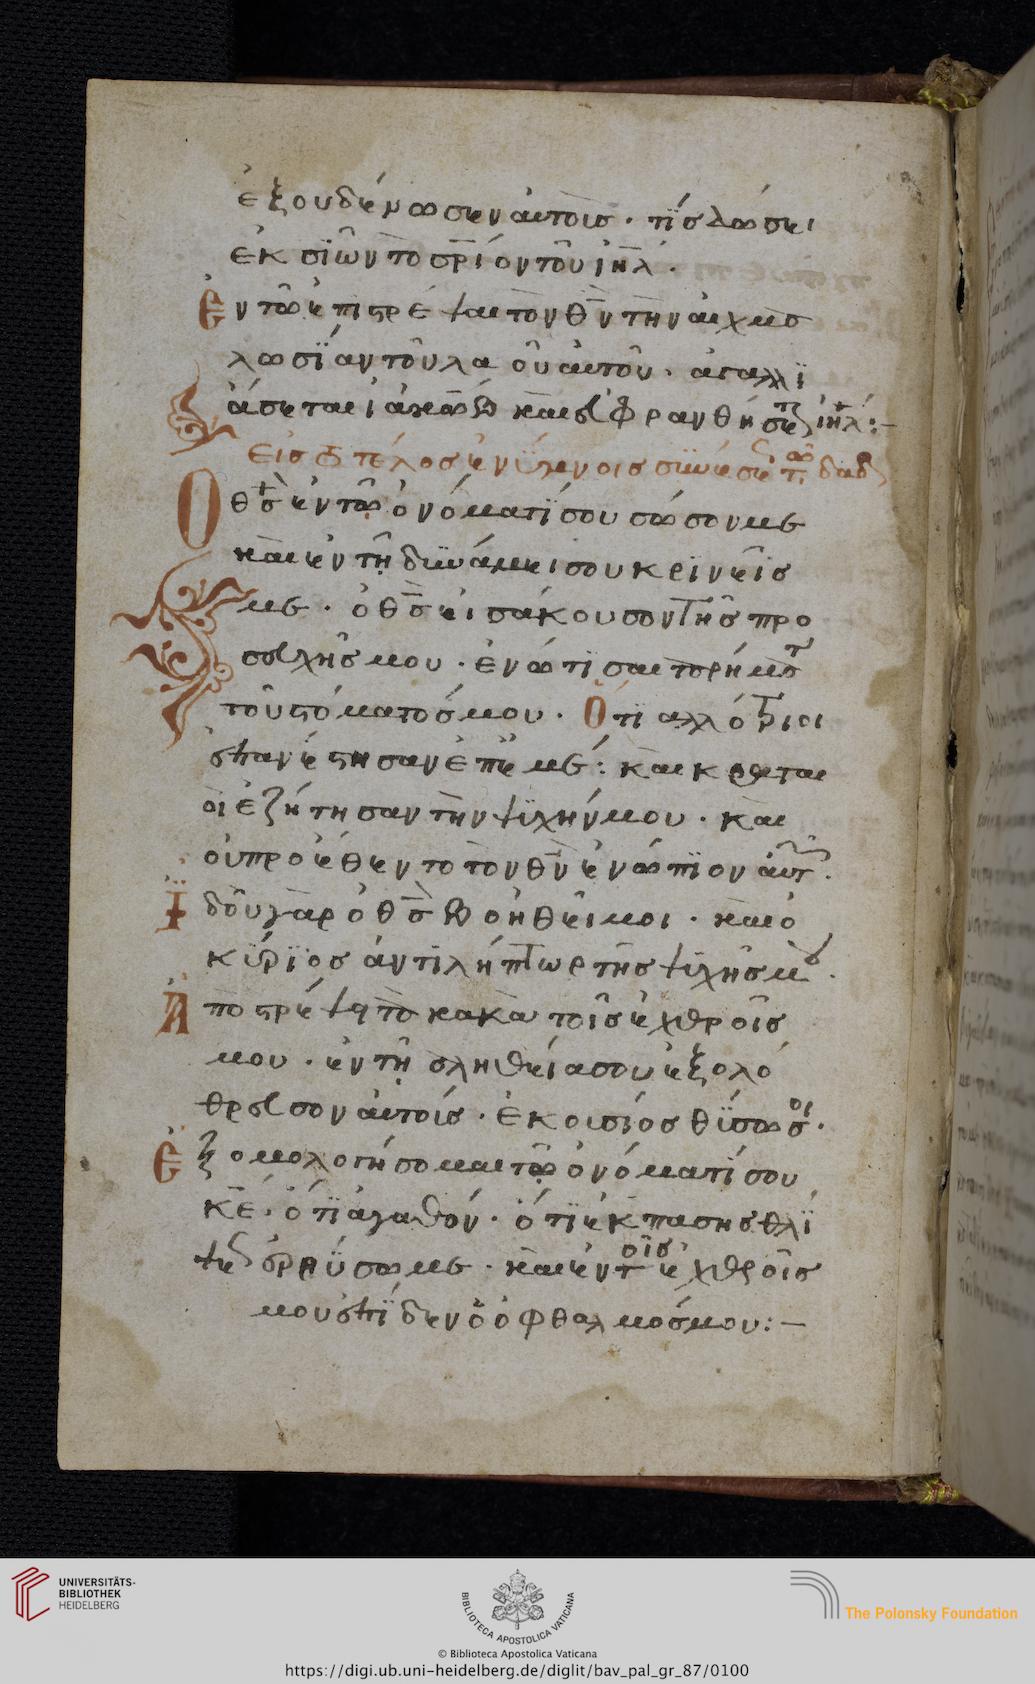 ἐξουδένωσεν ἀυτοισ · τίσ λώσει
ἐκ σϊὼν το σρ̅ίον τοῦ ἰη̅λ ·
Ἐν τῶ ἐπιστρέψαι τὸν θν̅ τὴν ἀιχμα
λωσΐαν τοῦ λα οῦ ἀυτοῦ · ἀγαλλϊ
άσεται ἰακὼβ καὶ ἐυφρανθήσετ ἰη̅λ :–
Εἰσ τὸ τέλοσ ἐν ὕμνοισ σϋνέσε τῶ δαδ
Ὁ θσ̅ ἐν τῶ ὀνόματΐ σου σῶσον με
καὶ ἐν τῆ δϋνάμει σου κρϊνεῖσ
με · ὁ θσ̅ εἰσάκουσον τῆσ προ
σευχῆσ μου · ἐνώτϊσαι τὰ ρήματ
τοῦ στόματόσ μου · Ὅτϊ αλλότριοι
ἐπανέστησαν ἐπ ἐμέ : καὶ κραται
οὶ ἐζήτησαν τὴν ψϋχήν μου · καὶ
ὀυ προέθεντο τὸν θν̅ ἐνώπϊον ἀυτ ·
Ϊδοῦ γὰρ ὁ θσ̅ βοηθεῖ μοι · καὶ ὁ
κΰρϊοσ ἀντϊλήπτωρ τῆσ ψϋχῆσ μου ·
Ἀποστρέψη τὰ κακὰ τοῖσ ἐχθροῖσ
μου · ἐν τῆ αληθεία σου ἐξολό
θρευσον ἀυτοίσ · Ἐκοισίοσ θΰσω σοι ·
Ἐξομολογήσομαι τῶ ὀνόματί σου
κε̅ · ὅτϊ ἀγαθόν · ὅτϊ ἐκ πασησ θλΐ
ψε ἐρρΰσω με · καὶ ἐν τοῖσ ἐχθροῖσ
μου ἐπῖδεν ὁ ὀφθαλμόσ μου :–
UNIVERSITÄTS-
BIBLIOTHEK
HEIDELBERG
BIBLIOTECA APOSTOLICA VATICANA
The Polonsky Foundation
© Biblioteca Apostolica Vaticana
https://digi.ub.uni-heidelberg.de/diglit/bav_pal_gr_87/0100